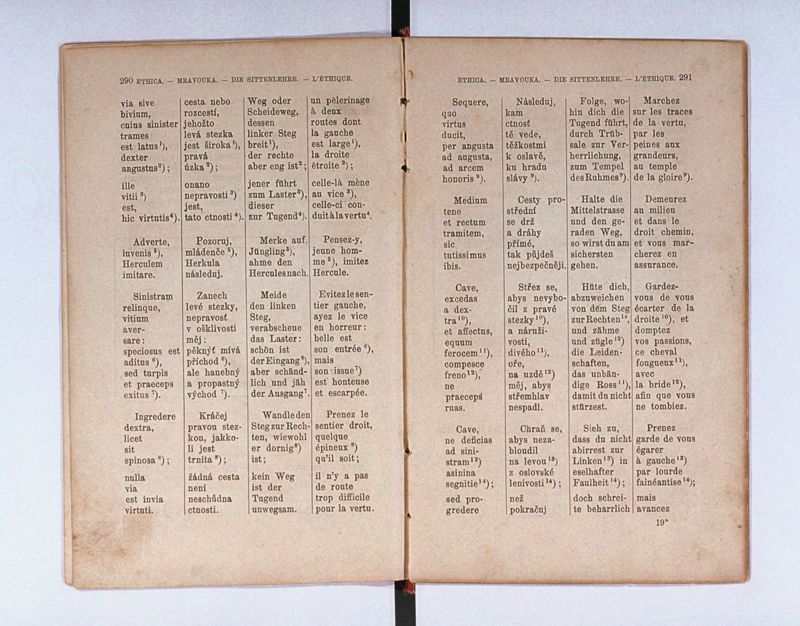 290 ETHICA. — MRAVOUKA. — DIE SITTENLEHRE. — L'ÉTHIQUE.
via sive
bivium,
cuius sinister
trames
est latus¹),
dexter
angustus²);
ille
vitii³)
est,
hic virtutis⁴).
Adverte,
iuvenis⁵),
Herculem
imitare.
Sinistram
relinque,
vitium
aver-
sare:
speciosus est
aditus⁶),
sed turpis
et praeceps
exitus⁷).
Ingredere
dextra,
licet
sit
spinosa⁸);
nulla
via
est invia
virtuti.
cesta nebo
rozcestí,
jehožto
levá stezka
jest široká¹),
pravá
úzka²);
onano
nepravosti³)
jest,
tato ctnosti⁴).
Pozoruj,
mládenče⁵),
Herkula
následuj.
Zanech
levé stezky,
nepravosť
v ošklivosti
měj:
pěkný mívá
příchod⁶),
ale hanebný
a propastný
východ⁷).
Kráčej
pravou stez-
kou, jakko-
li jest
trnita⁸);
žádná cesta
není
neschůdna
ctnosti.
Weg oder
Scheideweg,
dessen
linker Steg
breit¹),
der rechte
aber eng ist²;
jener führt
zum Laster³),
dieser
zur Tugend⁴).
Merke auf,
Jüngling⁵),
ahme den
Hercules nach.
Meide
den linken
Steg,
verabscheue
das Laster:
schön ist
der Eingang⁶),
aber schänd-
lich und jäh
der Ausgang⁷.
Wandle den
Steg zur Rech-
ten, wiewohl
er dornig⁸)
ist;
kein Weg
ist der
Tugend
unwegsam.
un pèlerinage
à deux
routes dont
la gauche
est large¹),
la droite
étroite²);
celle-là mène
au vice³),
celle-ci con-
duit à la vertu⁴.
Pensez-y,
jeune hom-
me⁵), imitez
Hercule.
Evitez le sen-
tier gauche,
ayez le vice
en horreur:
belle est
son entrée⁶),
mais
son issue⁷)
est honteuse
et escarpée.
Prenez le
sentier droit,
quelque
épineux⁸)
qu'il soit;
il n'y a pas
de route
trop difficile
pour la vertu.
ETHICA. — MRAVOUKA. — DIE SITTENLEHRE. — L'ÉTHIQUE. 291
Sequere,
quo
virtus
ducit,
per angusta
ad augusta,
ad arcem
honoris⁹).
Medium
tene
et rectum
tramitem,
sic
tutissimus
ibis.
Cave,
excedas
a dex-
tra¹⁰),
et affectus,
equum
ferocem¹¹),
compesce
freno¹²),
ne
praeceps
ruas.
Cave,
ne deficias
ad sini-
stram¹³)
asinina
segnitie¹⁴);
sed pro-
gredere
Následuj,
kam
ctnosť
tě vede,
těžkostmi
k oslavě,
ku hradu
slávy⁹).
Cesty pro-
střední
se drž
a dráhy
přímé,
tak půjdeš
nejbezpečněji.
Střez se,
abys nevybo-
čil z pravé
stezky¹⁰),
a náruži-
vosti,
divého¹¹).
oře,
na uzdě¹²)
měj, abys
střemhlav
nespadl.
Chraň se,
abys neza-
bloudil
na levou¹³)
z oslovské
lenivosti¹⁴);
než
pokračuj
Folge, wo-
hin dich die
Tugend führt,
durch Trüb-
sale zur Ver-
herrlichung,
zum Tempel
des Ruhmes⁹).
Halte die
Mittelstrasse
und den ge-
raden Weg,
so wirst du am
sichersten
gehen.
Hüte dich,
abzuweichen
von dem Steg
zur Rechten¹⁰,
und zähme
und zügle¹²)
die Leiden-
schaften,
das unbän-
dige Ross¹¹),
damit du nicht
stürzest.
Sieh zu,
dass du nicht
abirrest zur
Linken¹³) in
eselhafter
Faulheit¹⁴);
doch schrei-
te beharrlich
Marchez
sur les traces
de la vertu,
par les
peines aux
grandeurs,
au temple
de la gloire⁹).
Demeurez
au milieu
et dans le
droit chemin,
et vous mar-
cherez en
assurance.
Gardez-
vous de vous
écarter de la
droite¹⁰), et
domptez
vos passions,
ce cheval
fougueux¹¹),
avec
la bride¹²),
afin que vous
ne tombiez.
Prenez
garde de vous
égarer
à gauche¹³)
par lourde
fainéantise¹⁴);
mais
avancez
19*